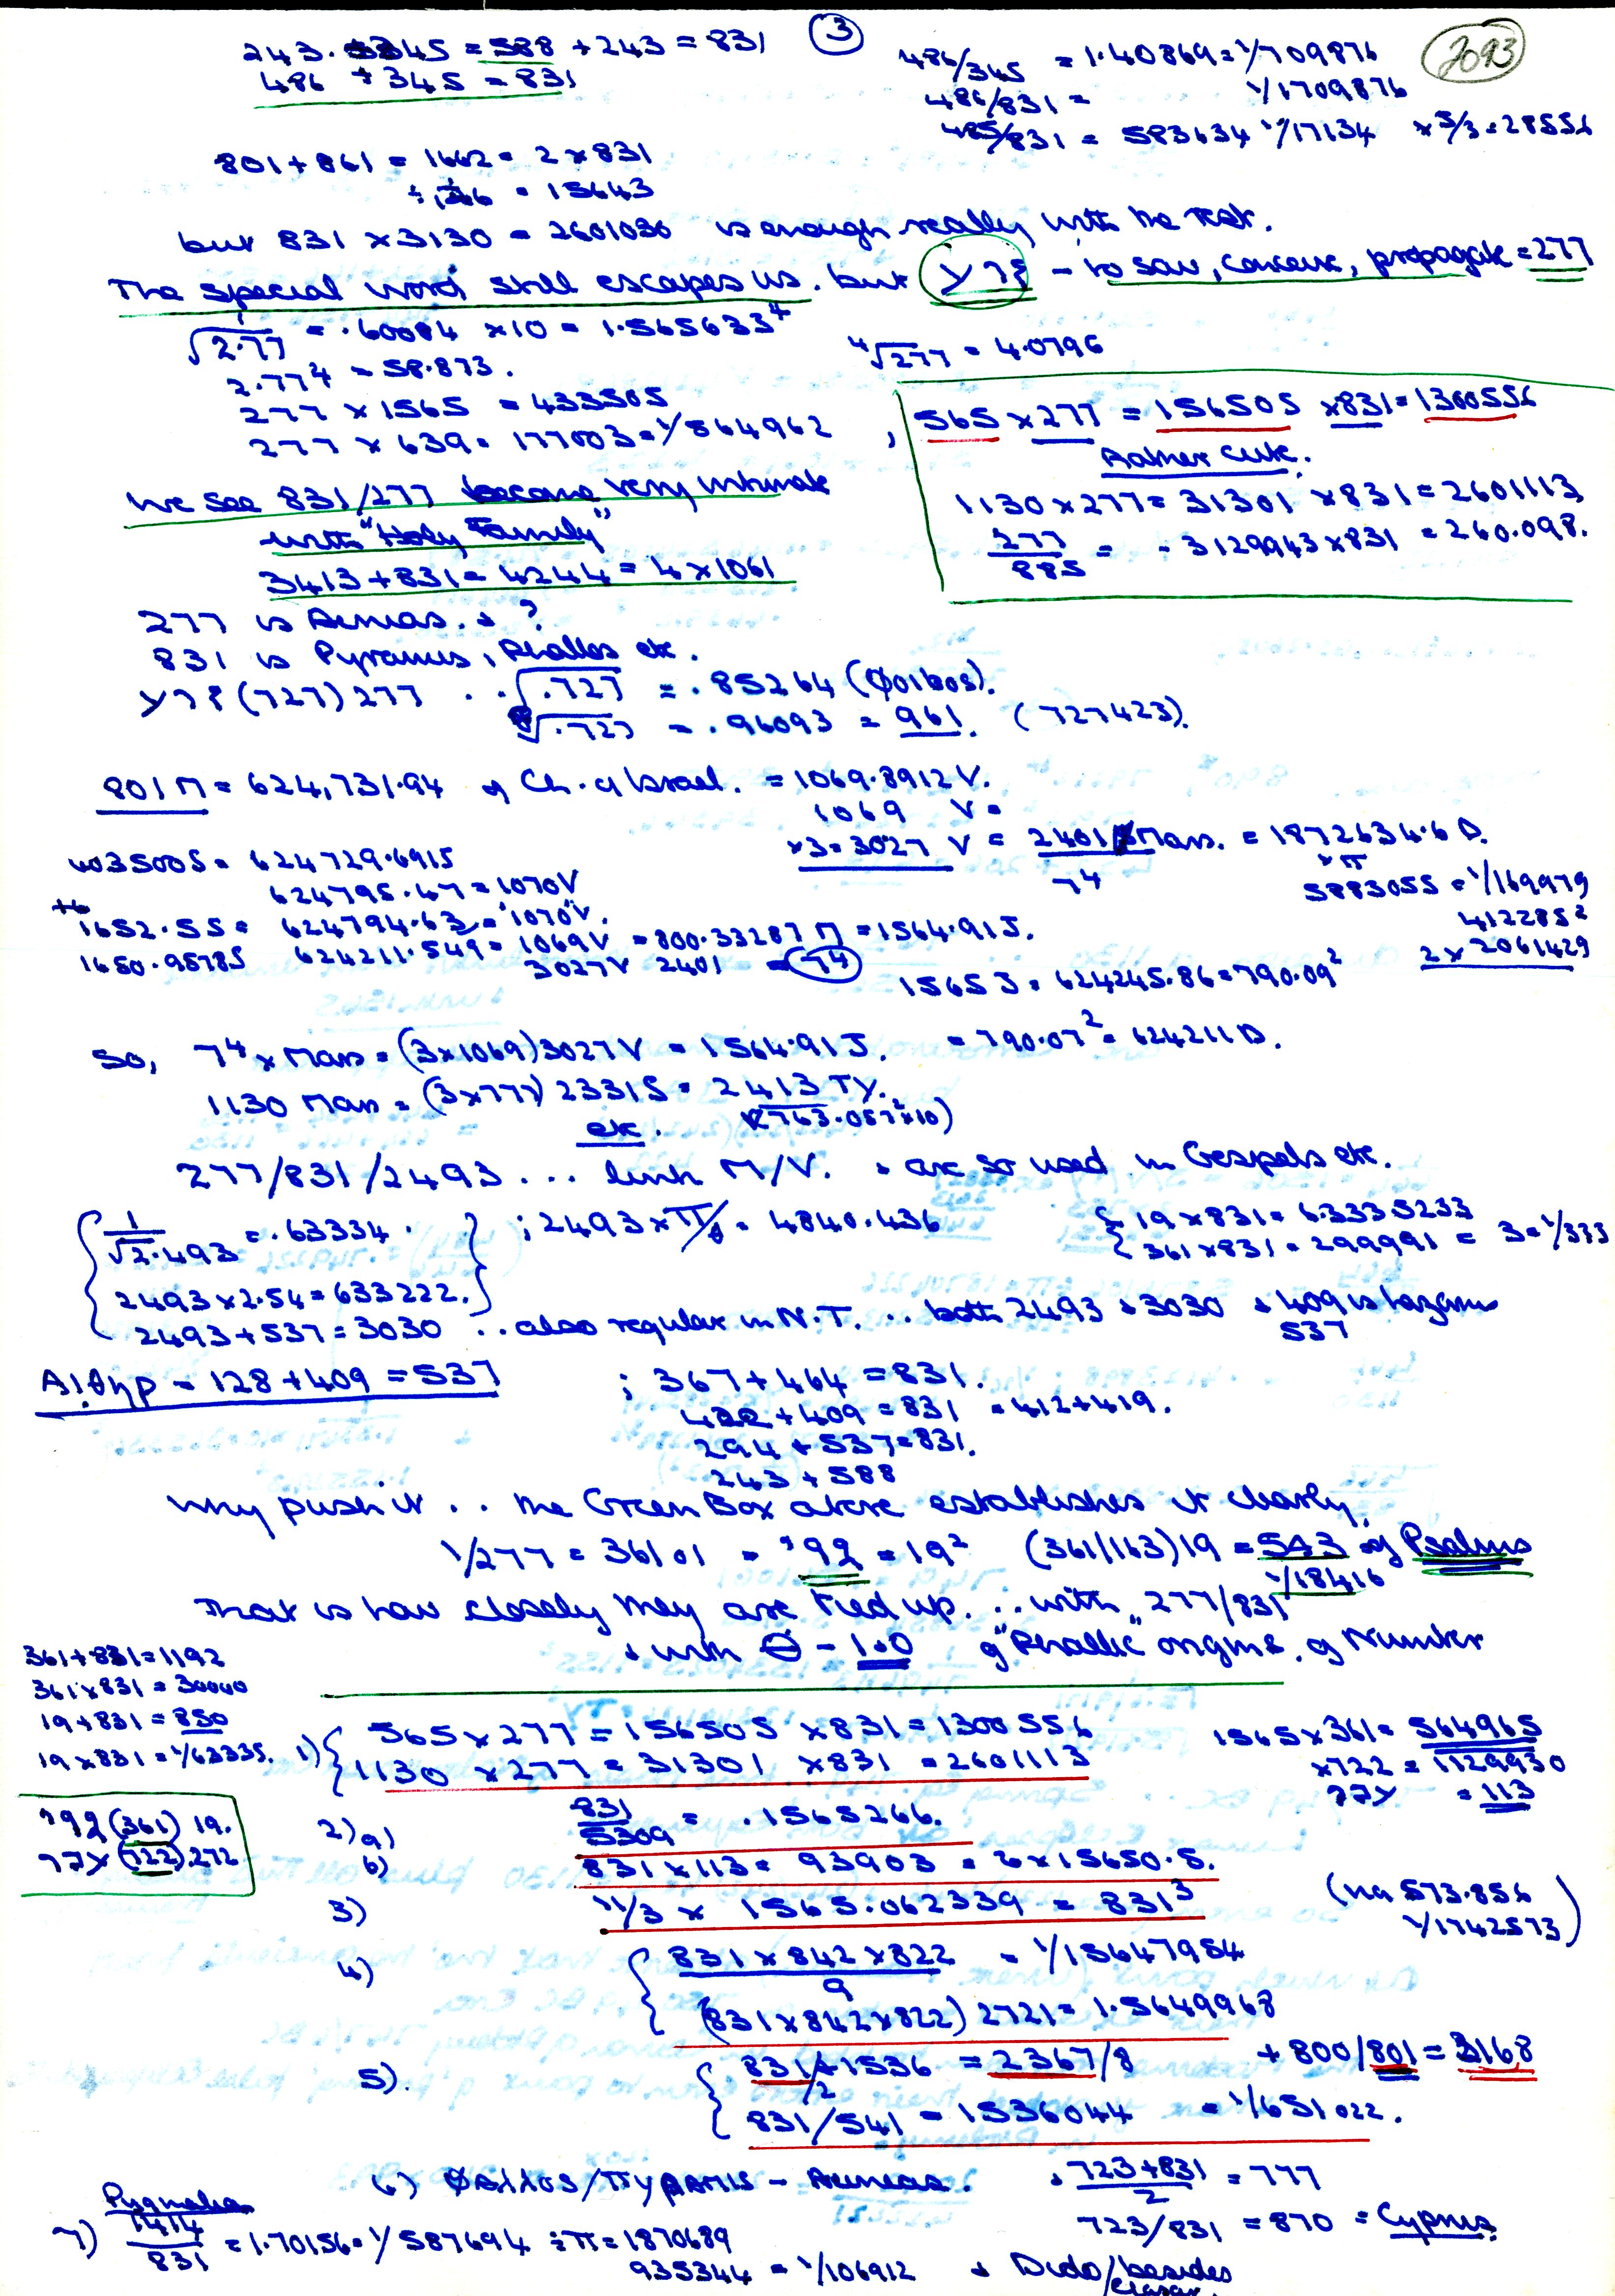 243. 345 = 588 + 243 = 831
3
486/345 = 1.40869 = 1/709876
2093
486 + 345 = 831
486/831 = 1/1709876
485/831 = 583634 1/17134 × 3/3 = 28556
801 + 861 = 1662 = 2 × 831
= 15643
but 831 × 3130 = 2601030 is enough really with the rest.
The special word still escapes us. but ערז – to sow, conceive, propagate = 277
1/√2.77 = .60084 × 10 = 1.565633⁴
⁴√277 = 4.0796
2.77⁴ = 58.873.
277 × 1565 = 433505
277 × 639 = 177003 = 1/564962
, 565 × 277 = 156505 × 831 = 1300556
Rather cute.
We see 831/277 become very intimate
with "Holy Family"
1130 × 277 = 31301 × 831 = 2601113
277/885 = .3129943 × 831 = 260.098.
3413 + 831 = 4244 = 4 × 1061
277 is Aeneas. + ?
831 is Pyramus, Phallos etc.
ערז (727) 277 . . √.727 = .85264 (Φοιβος).
⁸√.727 = .96093 = 961. (727423).
801 M = 624,731.94 of Ch. of Israel. = 1069.8912 V.
1069 V =
×3 = 3027 V = 2401 Mars. = 1872634.6 D.
7⁴
× π
5883055 = 1/169979
412285²
2 × 2061429
403500S = 624729.6915
624795.47 = 1070V
1652.5S = 624794.63 = "1070"V.
1650.95785 624211.549 = 1069V = 800.33287 M = 1564.91 J.
3027V 2401 = 7⁴
1565 J = 624245.86 = 790.09²
So, 7⁴ × Mars = (3×1069) 3027V = 1564.91 J. = 790.07² = 624211 D.
1130 Mars = (3×777) 2331 S = 2413 TY.
etc. (763.057² × 10)
277/831/2493 . . . link M/V. + are so used in Gospels etc.
1/√2.493 = .63334.
; 2493 × π/ = 4840.436
19 × 831 = 6.3335233
361 × 831 = 299991 = 3 = 1/333
2493 × 2.54 = 633222.
2493 + 537 = 3030 . . also regular in N.T. . . both 2493 + 3030 + 409 is Lazarus
537
Αιθηρ – 128 + 409 = 537
; 367 + 464 = 831.
422 + 409 = 831 = 412 + 419.
294 + 537 = 831.
243 + 588
Why push it . . the Green Box above establishes it clearly,
1/277 = 36101 = = 19² (361/163) 19 = 543 of Psalms
1/18416
That is how closely they are tied up. . . with "277/831"
+ with Θ – 1.0 of "Phallic" origins. of Number
361 + 831 = 1192
361 × 831 = 30000
19 + 831 = 850
19 × 831 = 1/63335.
1) 565 × 277 = 156505 × 831 = 1300556
1130 × 277 = 31301 × 831 = 2601113
1565 × 361 = 564965
×722 = 1129930
= 113
(361) 19.
(722) 272
2) a) 831/5309 = .1565266.
b) 831 × 113 = 93903 = 6 × 15650.5.
3) 11/3 × 1565.062339 = 831³
(na 573.856
1/1742573)
4) 831 × 842 × 822 / 9 = 1/15647954
(831 × 842 × 822) 2721 = 1.5649968
5). 831 + 1536 / 2 = 2367/8 + 800/801 = 3168
831/541 = 1536044 = 1/651022.
6) Φαλλος/Πυραμις – Aeneas. + 723 + 831 / 2 = 777
723/831 = 870 = Cyprus.
Pygmalion
7) 1414/831 = 1.70156 = 1/587694 ÷ π = 1870689
935344 = 1/106912 + Dido/besides